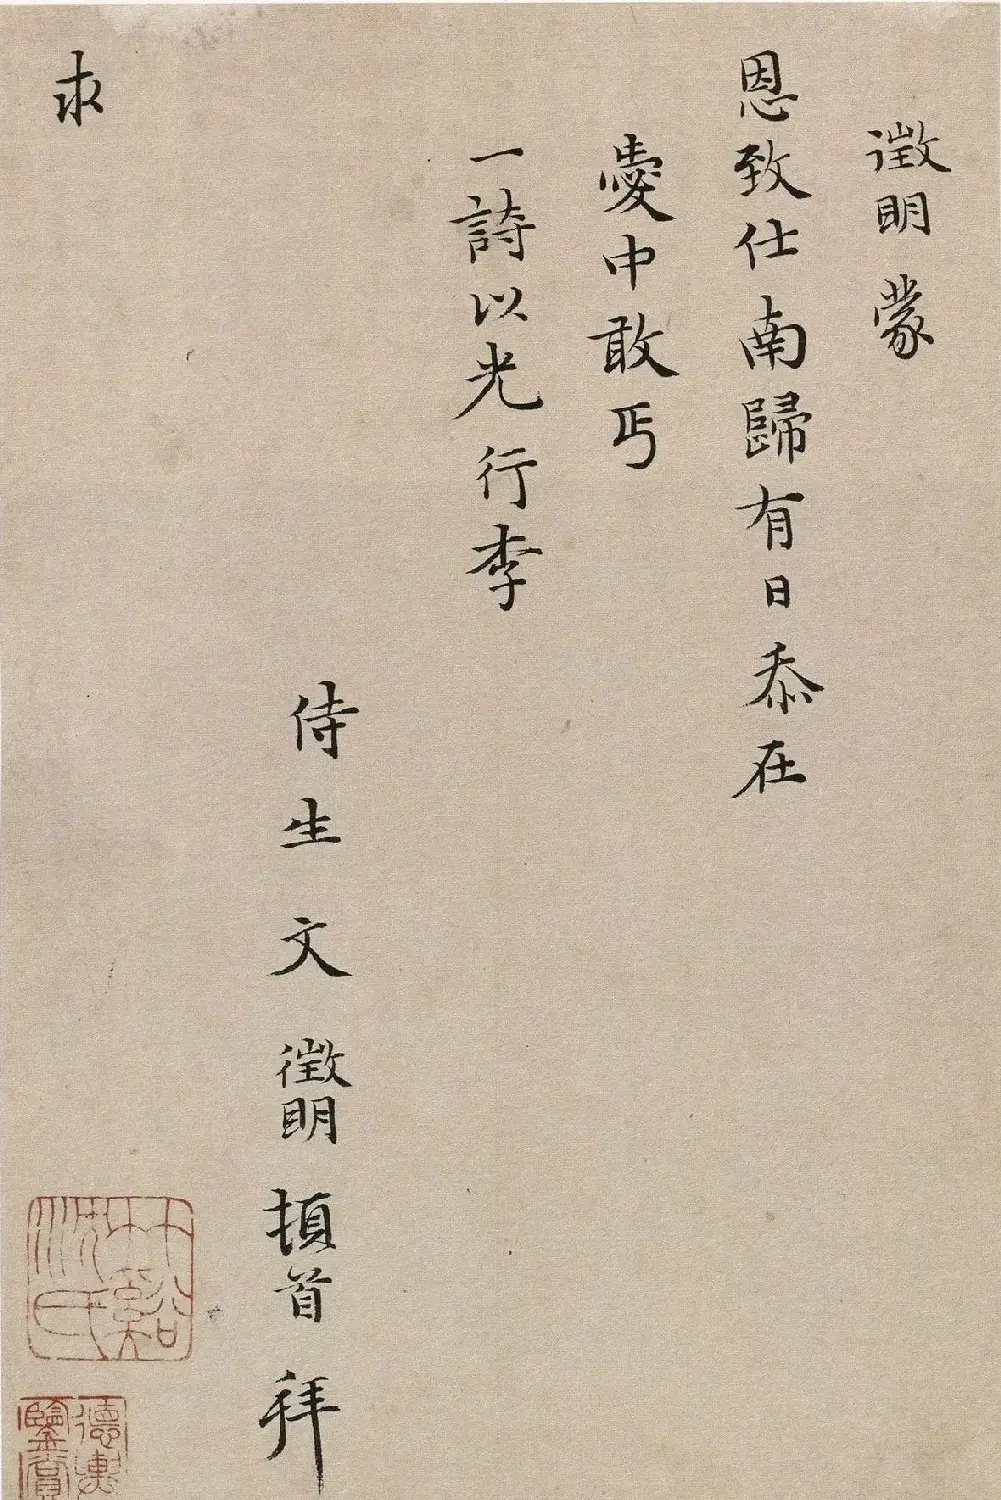 徵明蒙
恩致仕南歸有日忝在
愛中敢丐
一詩以光行李
侍生文徵明頓首拜
求
竹谿沈氏
德輿鑒賞